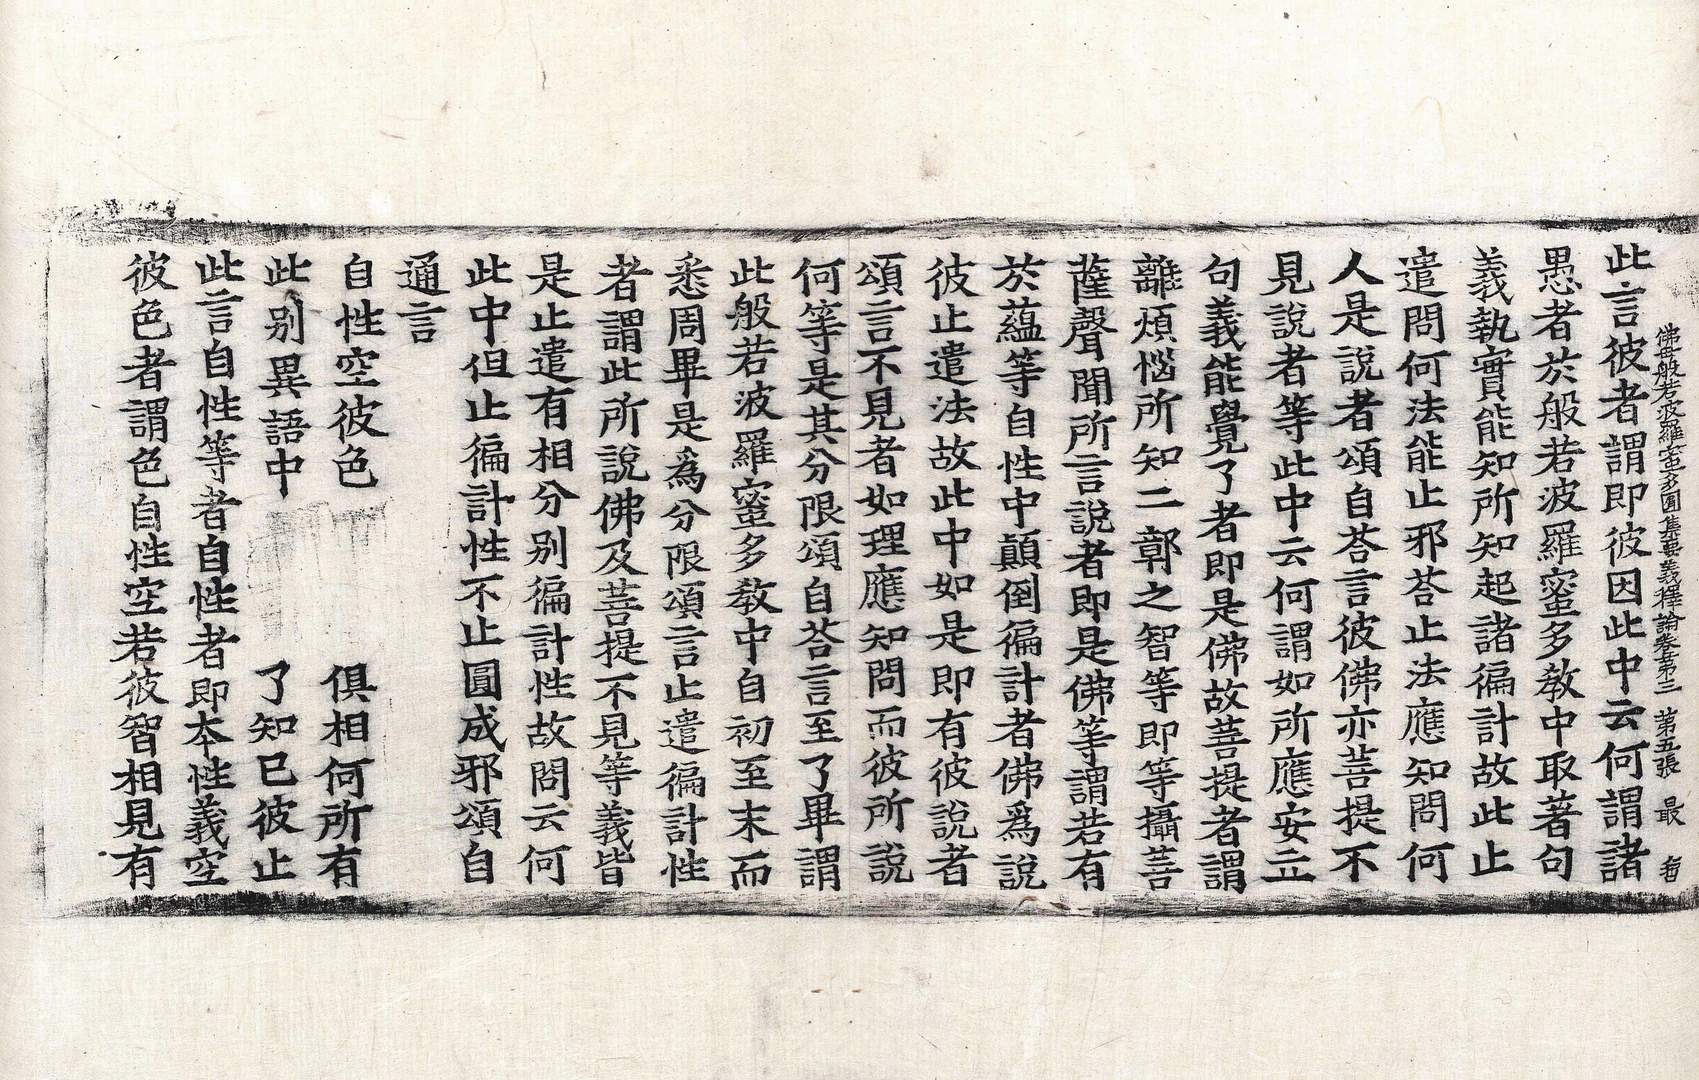 佛母般若波羅蜜多圓集要義釋論卷第三 第五張 最
此言彼者謂即彼因此中云何謂諸
愚者於般若波羅蜜多教中取著句
義執實能知所知起諸徧計故此止
遣問何法能止邪荅止法應知問何
人是說者頌自荅言彼佛亦菩提不
見說者等此中云何謂如所應安立
句義能覺了者即是佛故菩提者謂
離煩惱所知二鄣之智等即等攝菩
薩聲聞所言說者即是佛等謂若有
於蘊等自性中顛倒徧計者佛爲說
彼止遣法故此中如是即有彼說者
頌言不見者如理應知問而彼所說
何等是其分限頌自荅言至了畢謂
此般若波羅蜜多教中自初至末而
悉周畢是爲分限頌言止遣徧計性
者謂此所說佛及菩提不見等義皆
是止遣有相分別徧計性故問云何
此中但止徧計性不止圓成邪頌自
通言
自性空彼色 俱相何所有
此別異語中 了知巳彼止
此言自性等者自性者即本性義空
彼色者謂色自性空若彼智相見有